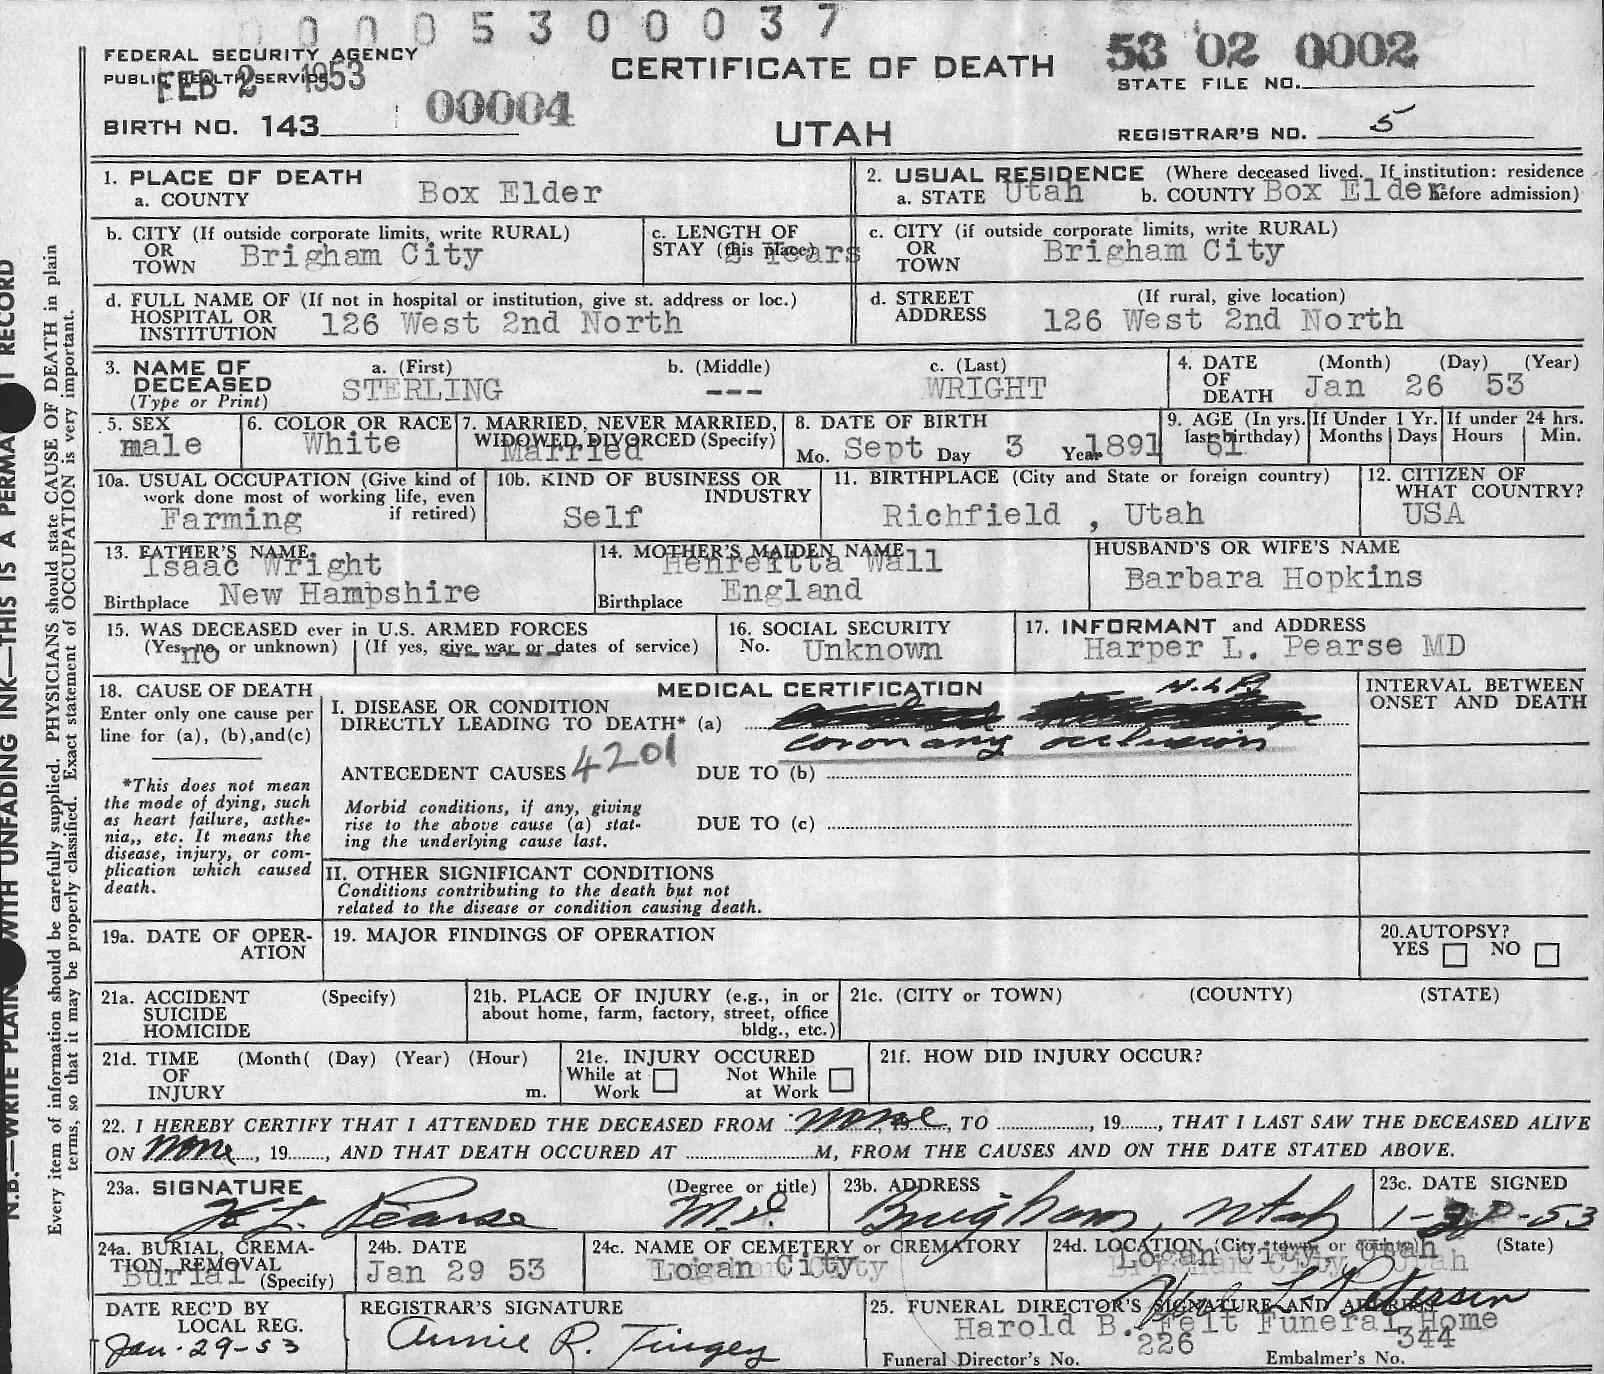 0 0 0 0 5 3 0 0 0 3 7
FEDERAL SECURITY AGENCY
PUBLIC HEALTH SERVICE
FEB 2 1953
CERTIFICATE OF DEATH
53 02 0002
STATE FILE NO.
BIRTH NO. 143 00004
UTAH
REGISTRAR'S NO. 5
1. PLACE OF DEATH
a. COUNTY Box Elder
2. USUAL RESIDENCE (Where deceased lived. If institution: residence
a. STATE Utah b. COUNTY Box Elder before admission)
b. CITY (If outside corporate limits, write RURAL)
OR
TOWN Brigham City
c. LENGTH OF
STAY (this place) 2 Years
c. CITY (if outside corporate limits, write RURAL)
OR
TOWN Brigham City
d. FULL NAME OF (If not in hospital or institution, give st. address or loc.)
HOSPITAL OR
INSTITUTION 126 West 2nd North
d. STREET (If rural, give location)
ADDRESS 126 West 2nd North
3. NAME OF
DECEASED
(Type or Print)
a. (First) b. (Middle) c. (Last)
STERLING --- WRIGHT
4. DATE (Month) (Day) (Year)
OF
DEATH Jan 26 53
5. SEX
male
6. COLOR OR RACE
White
7. MARRIED, NEVER MARRIED,
WIDOWED, DIVORCED (Specify)
Married
8. DATE OF BIRTH
Mo. Sept Day 3 Year 1891
9. AGE (In yrs.
last birthday) 61
If Under 1 Yr.
Months Days
If under 24 hrs.
Hours Min.
10a. USUAL OCCUPATION (Give kind of
work done most of working life, even
if retired)
Farming
10b. KIND OF BUSINESS OR
INDUSTRY
Self
11. BIRTHPLACE (City and State or foreign country)
Richfield , Utah
12. CITIZEN OF
WHAT COUNTRY?
USA
13. FATHER'S NAME
Isaac Wright
Birthplace New Hampshire
14. MOTHER'S MAIDEN NAME
Henrietta Wall
Birthplace England
HUSBAND'S OR WIFE'S NAME
Barbara Hopkins
15. WAS DECEASED ever in U.S. ARMED FORCES
(Yes, no or unknown) (If yes, give war or dates of service)
no
16. SOCIAL SECURITY
No. Unknown
17. INFORMANT and ADDRESS
Harper L. Pearse MD
18. CAUSE OF DEATH
Enter only one cause per
line for (a), (b),and(c)
*This does not mean
the mode of dying, such
as heart failure, asthe-
nia,, etc. It means the
disease, injury, or com-
plication which caused
death.
MEDICAL CERTIFICATION
I. DISEASE OR CONDITION
DIRECTLY LEADING TO DEATH* (a)
coronary occlusion
ANTECEDENT CAUSES 4201 DUE TO (b)
Morbid conditions, if any, giving
rise to the above cause (a) stat-
ing the underlying cause last.
DUE TO (c)
II. OTHER SIGNIFICANT CONDITIONS
Conditions contributing to the death but not
related to the disease or condition causing death.
INTERVAL BETWEEN
ONSET AND DEATH
19a. DATE OF OPER-
ATION
19. MAJOR FINDINGS OF OPERATION
20.AUTOPSY?
YES NO
21a. ACCIDENT (Specify)
SUICIDE
HOMICIDE
21b. PLACE OF INJURY (e.g., in or
about home, farm, factory, street, office
bldg., etc.)
21c. (CITY or TOWN) (COUNTY) (STATE)
21d. TIME (Month( (Day) (Year) (Hour)
OF
INJURY m.
21e. INJURY OCCURED
While at Not While
Work at Work
21f. HOW DID INJURY OCCUR?
22. I HEREBY CERTIFY THAT I ATTENDED THE DECEASED FROM none, TO , 19 , THAT I LAST SAW THE DECEASED ALIVE
ON none, 19 , AND THAT DEATH OCCURED AT M, FROM THE CAUSES AND ON THE DATE STATED ABOVE.
23a. SIGNATURE (Degree or title)
H L Pearse M.D.
23b. ADDRESS
Brigham, Utah
23c. DATE SIGNED
24a. BURIAL, CREMA-
TION REMOVAL
(Specify)
Burial
24b. DATE
Jan 29 53
24c. NAME OF CEMETERY or CREMATORY
Logan City
24d. LOCATION (City, town, or county) (State)
Logan City Utah
DATE REC'D BY
LOCAL REG.
Jan-29-53
REGISTRAR'S SIGNATURE
Annie R. Tingey
25. FUNERAL DIRECTOR'S SIGNATURE AND ADDRESS
Harold B. Felt Funeral Home
226 344
Funeral Director's No. Embalmer's No.
Every item of information should be carefully supplied. PHYSICIANS should state CAUSE OF DEATH in plain
terms, so that it may be properly classified. Exact statement of OCCUPATION is very important.
N.B.—WRITE PLAIN WITH UNFADING INK—THIS IS A PERMA RECORD